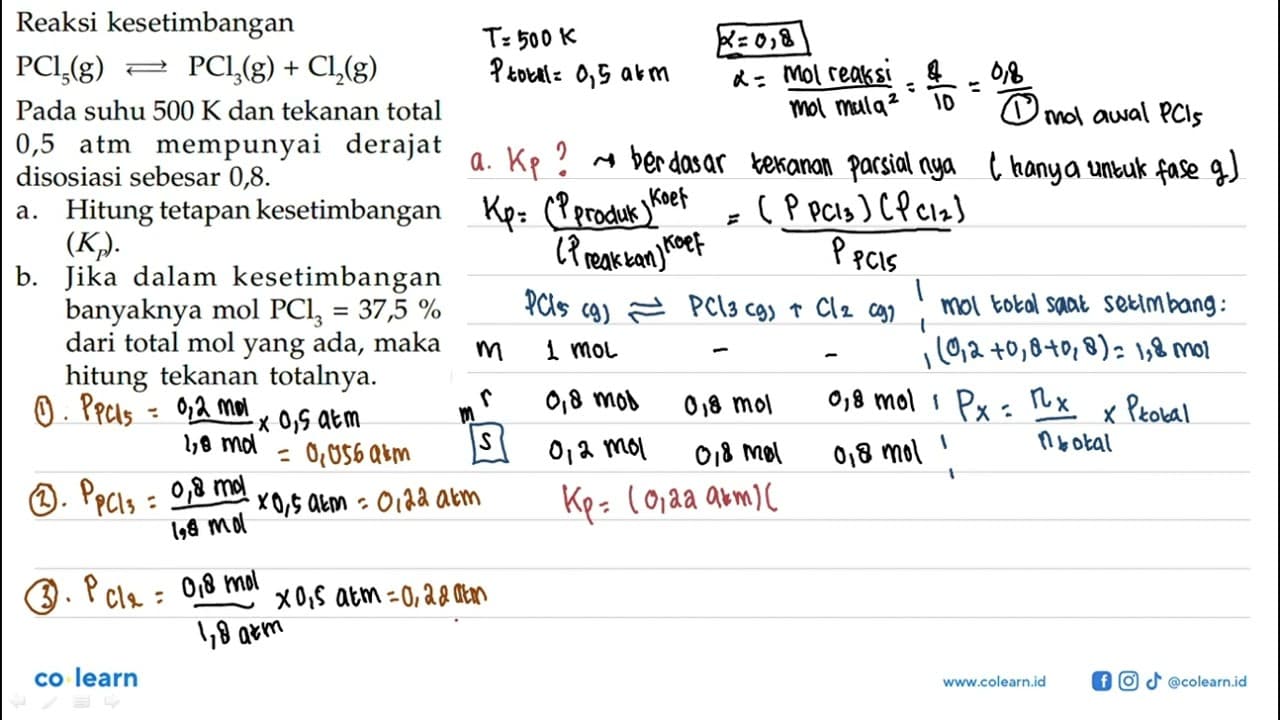 Reaksi kesetimbangan
PCl₅(g) ⇌ PCl₃(g) + Cl₂(g)
Pada suhu 500 K dan tekanan total
0,5 atm mempunyai derajat
disosiasi sebesar 0,8.
a. Hitung tetapan kesetimbangan
(Kₚ).
b. Jika dalam kesetimbangan
banyaknya mol PCl₃ = 37,5 %
dari total mol yang ada, maka
hitung tekanan totalnya.
T = 500 K
Ptotal = 0,5 atm
α = 0,8
α = mol reaksi / mol mula² = 8/10 = 0,8/1 mol awal PCl5
a. Kp? → berdasar tekanan parsial nya (hanya untuk fase g)
Kp = (P produk)^koef / (P reaktan)^koef = (P PCl3)(P Cl2) / P PCl5
PCl5 (g) ⇌ PCl3 (g) + Cl2 (g)
m 1 mol - -
r 0,8 mol 0,8 mol 0,8 mol
m
s 0,2 mol 0,8 mol 0,8 mol
mol total saat setimbang:
(0,2 + 0,8 + 0,8) = 1,8 mol
Px = nx / ntotal × Ptotal
Kp = (0,22 atm)(
① . P PCl5 = 0,2 mol / 1,8 mol × 0,5 atm
= 0,056 atm
② . P PCl3 = 0,8 mol / 1,8 mol × 0,5 atm = 0,22 atm
③ . P Cl2 = 0,8 mol / 1,8 atm × 0,5 atm = 0,22 atm
co learn
www.colearn.id
@colearn.id